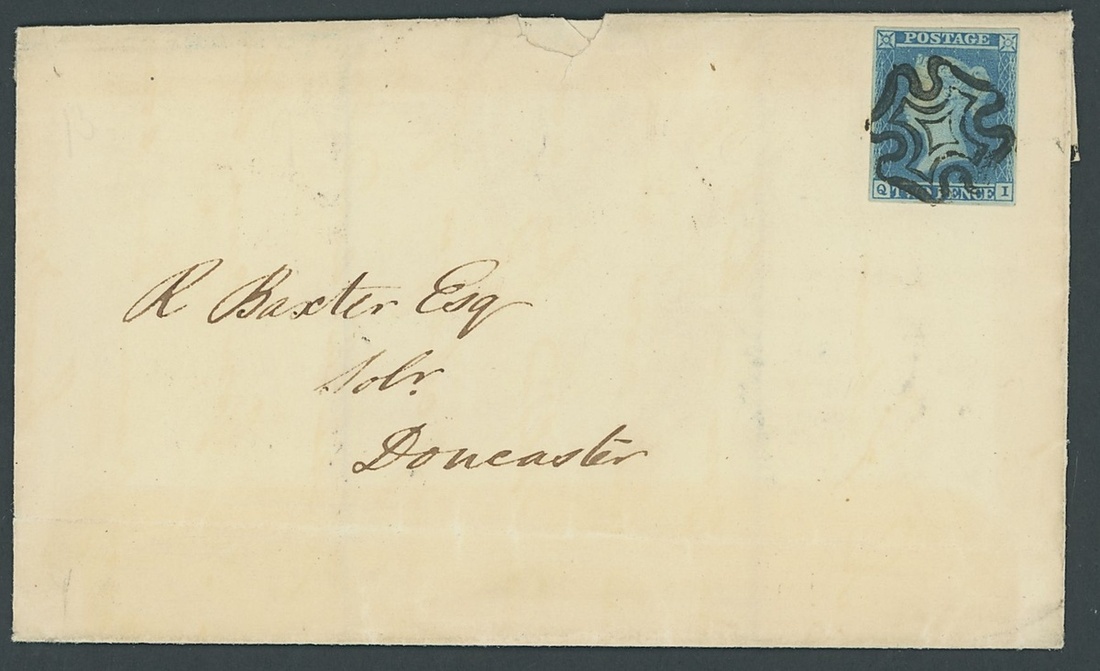 POSTAGE
Q TWO PENCE I
R Baxter Esq
Solr.
Doncaster